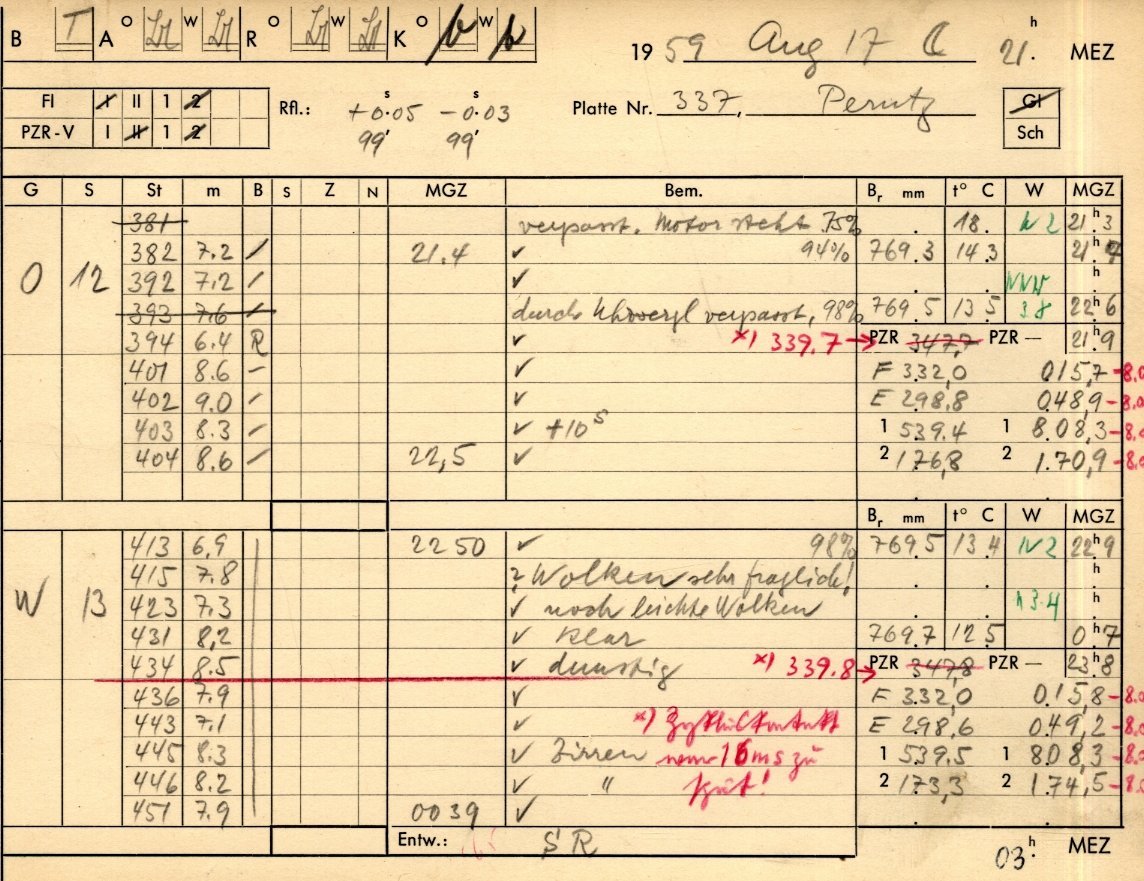 B T A O W R O W K O W 19 59 Aug 17 21.h MEZ
FI I II 1 2 Rfl.: +0.05s -0.03s Platte Nr. 337, Perutz Gl
PZR-V I II 1 2 99' 99' Sch
G S St m B S Z N MGZ Bem. Br mm t° C W MGZ
381 verpasst. Motor steht 75% 18. N 2 21h3
382 7.2 / 21.4 ✓ 94% 769.3 14.3 21.h
O 12 392 7.2 / ✓ NNW h
393 7.6 / durch verpasst, 98% 769.5 13.5 3.8 22h6
394 6.4 R ✓ *) 339.7 → PZR 347,7 PZR — 21h9
401 8.6 – ✓ F 332,0 015,7 -8.0
402 9.0 / ✓ E 298,8 048,9 -8.0
403 8.3 / ✓ +10s 1 539.4 1 8.08,3
404 8.6 / 22,5 ✓ 2 176,8 2 1.70,9
Br mm t° C W MGZ
413 6,9 2250 ✓ 98% 769.5 13.4 N 2 22h9
415 7.8 ? Wolken sehr fraglich! h
W 13 423 7.3 ✓ noch leichte Wolken 3-4 h
431 8,2 ✓ klar 769.7 12.5 0h7
434 8.5 ✓ dunstig *) 339.8 → PZR 347,8 PZR — 23h8
436 7.9 ✓ F 332,0 0.15,8 -8.0
443 7.1 ✓ *) E 298,6 0.49,2 -8.0
445 8.3 ✓ Zirren 16 ms zu 1 539.5 1 808,3
446 8.2 ✓ " spät! 2 173,3 2 1.74,5
451 7.9 0039 ✓
Entw.: SR 03h. MEZ